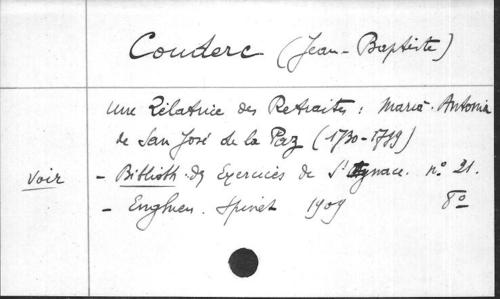 Couderc (Jean-Baptiste)
une Zélatrice des Retraites : Maria-Antonia
de San José de la Paz (1730-1799)
voir - Biblioth. des Exercices de St Ignace. no 21.
- Enghien. Spinet 1909 8o